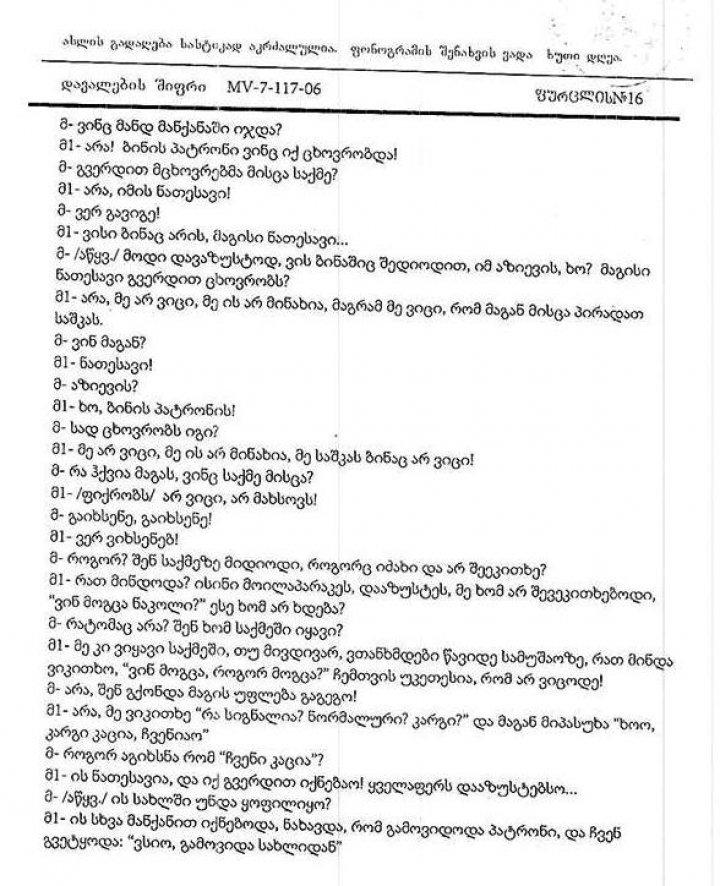 ასლის გადაღება სასტიკად აკრძალულია. ფონოგრამის შენახვის ვადა ხუთი დღეა.
დავალების შიფრი MV-7-117-06 ფურცლის№16
მ- ვინც მანდ მანქანაში იჯდა?
მ1- არა! ბინის პატრონი ვინც იქ ცხოვრობდა!
მ- გვერდით მცხოვრებმა მისცა საქმე?
მ1- არა, იმის ნათესავი!
მ- ვერ გავიგე!
მ1- ვისი ბინაც არის, მაგისი ნათესავი...
მ- /აწყვ./ მოდი დავაზუსტოდ, ვის ბინაშიც შედიოდით, იმ აზიევის, ხო? მაგისი
ნათესავი გვერდით ცხოვრობს?
მ1- არა, მე არ ვიცი, მე ის არ მინახია, მაგრამ მე ვიცი, რომ მაგან მისცა პირადათ
საშკას.
მ- ვინ მაგან?
მ1- ნათესავი!
მ- აზიევის?
მ1- ხო, ბინის პატრონის!
მ- სად ცხოვრობს იგი?
მ1- მე არ ვიცი, მე ის არ მინახია, მე საშკას ბინაც არ ვიცი!
მ- რა ჰქვია მაგას, ვინც საქმე მისცა?
მ1- /ფიქრობს/ არ ვიცი, არ მახსოვს!
მ- გაიხსენე, გაიხსენე!
მ1- ვერ ვიხსენებ!
მ- როგორ? შენ საქმეზე მიდიოდი, როგორც იძახი და არ შეეკითხე?
მ1- რათ მინდოდა? ისინი მოილაპარაკეს, დააზუსტეს, მე ხომ არ შევეკითხებოდი,
"ვინ მოგცა ნაკოლი?" ესე ხომ არ ხდება?
მ- რატომაც არა? შენ ხომ საქმეში იყავი?
მ1- მე კი ვიყავი საქმეში, თუ მივდივარ, ვთანხმდები წავიდე სამუშაოზე, რათ მინდა
ვიკითხო, "ვინ მოგცა, როგორ მოგცა?" ჩემთვის უკეთესია, რომ არ ვიცოდე!
მ- არა, შენ გქონდა მაგის უფლება გაგეგო!
მ1- არა, მე ვიკითხე "რა სიგნალია? ნორმალური? კარგი?" და მაგან მიპასუხა "ხოო,
კარგი კაცია, ჩვენიაო"
მ- როგორ აგიხსნა რომ "ჩვენი კაცია"?
მ1- ის ნათესავია, და იქ გვერდით იქნებაო! ყველაფერს დააზუსტებსო...
მ- /აწყვ./ ის სახლში უნდა ყოფილიყო?
მ1- ის სხვა მანქანით იქნებოდა, ნახავდა, რომ გამოვიდოდა პატრონი, და ჩვენ
გვეტყოდა: "ვსიო, გამოვიდა სახლიდან"